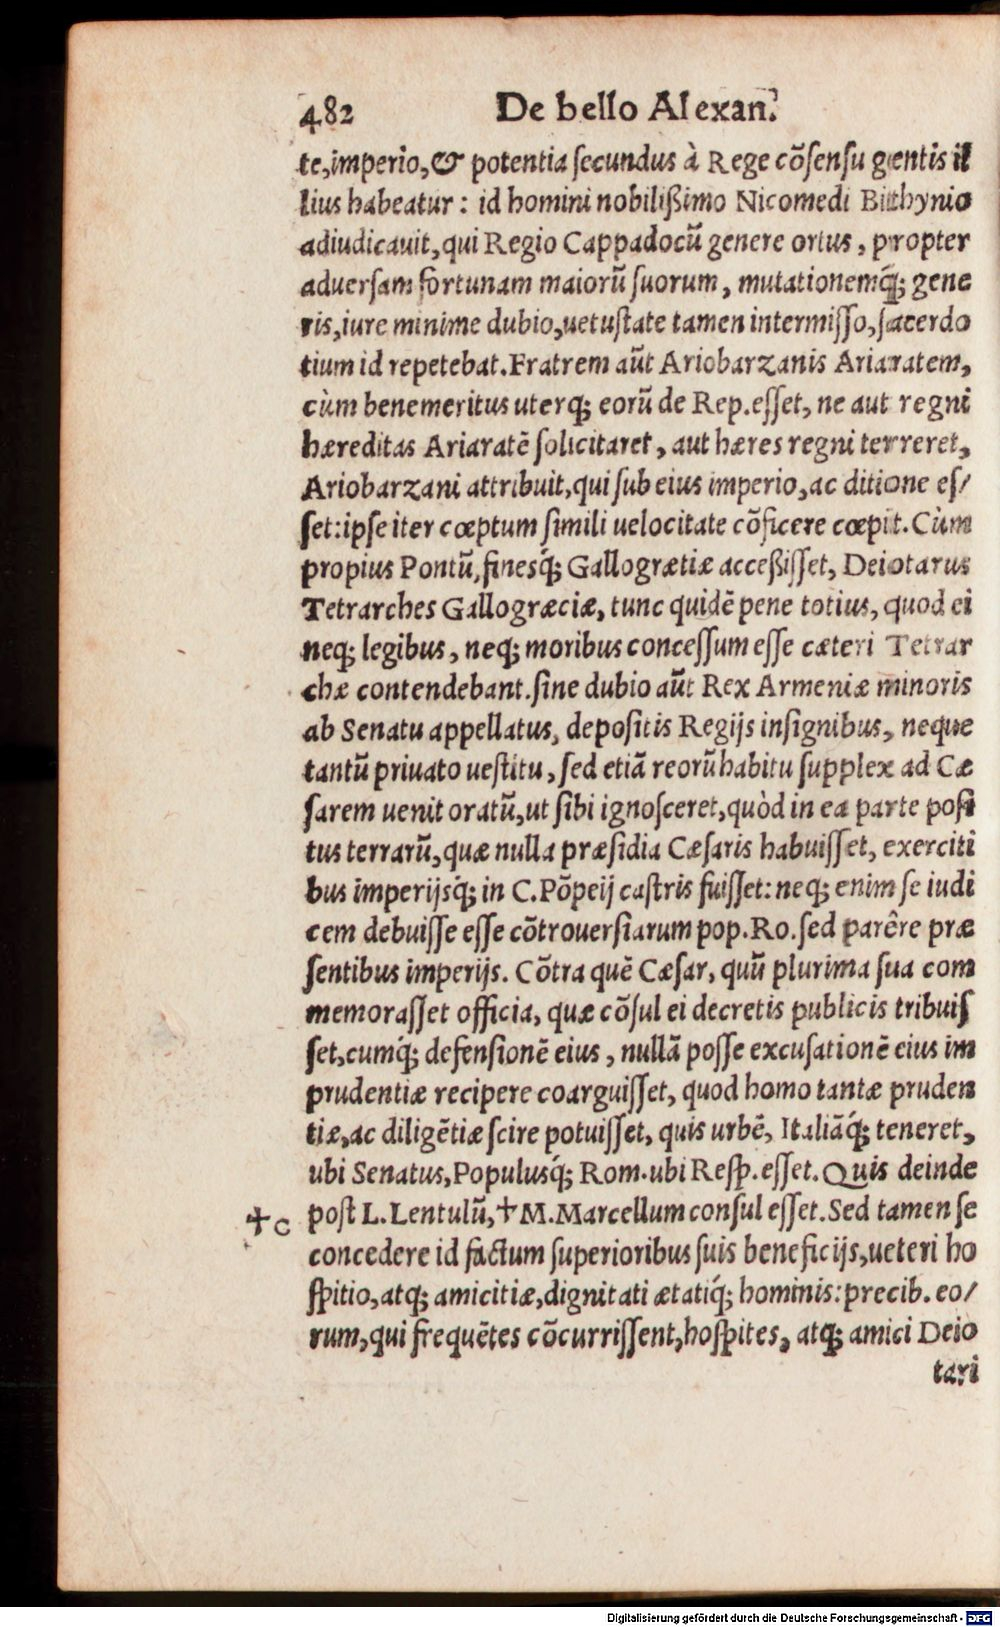 482 De bello Alexan.
te, imperio, & potentia secundus à Rege cõsensu gentis il
lius habeatur: id homini nobilißimo Nicomedi Bithynio
adiudicauit, qui Regio Cappadocũ genere ortus, propter
aduersam fortunam maiorũ suorum, mutationemq́; gene
ris, iure minime dubio, uetustate tamen intermisso, sacerdo
tium id repetebat. Fratrem aũt Ariobarzanis Ariaratem,
cùm benemeritus uterq; eorũ de Rep. esset, ne aut regni
hæreditas Ariaratẽ solicitaret, aut hæres regni terreret,
Ariobarzani attribuit, qui sub eius imperio, ac ditione es/
set: ipse iter cœptum simili uelocitate cõficere cœpit. Cùm
propius Pontũ, finesq́; Gallogrætiæ acceßisset, Deiotarus
Tetrarches Gallogræciæ, tunc quidẽ pene totius, quod ei
neq; legibus, neq; moribus concessum esse cæteri Tetrar
chæ contendebant. sine dubio aũt Rex Armeniæ minoris
ab Senatu appellatus, depositis Regijs insignibus, neque
tantũ priuato uestitu, sed etiã reorũ habitu supplex ad Cæ
sarem uenit oratũ, ut sibi ignosceret, quòd in ea parte posi
tus terrarũ, quæ nulla præsidia Cæsaris habuisset, exerciti
bus imperijsq́; in C. Põpeij castris fuisset: neq; enim se iudi
cem debuisse esse cõtrouersiarum pop. Ro. sed parêre præ
sentibus imperijs. Cõtra quẽ Cæsar, quũ plurima sua com
memorasset officia, quæ cõsul ei decretis publicis tribuis
set, cumq́; defensionẽ eius, nullã posse excusationẽ eius im
prudentiæ recipere coarguisset, quod homo tantæ pruden
tiæ, ac diligẽtiæ scire potuisset, quis urbẽ, Italiãq́; teneret,
ubi Senatus, Populusq́; Rom. ubi Resp. esset. Quis deinde
✝C post L. Lentulũ, ✝M. Marcellum consul esset. Sed tamen se
concedere id factum superioribus suis beneficijs, ueteri ho
spitio, atq; amicitiæ, dignitati ætatiq́; hominis: precib. eo/
rum, qui frequẽtes cõcurrissent, hospites, atq; amici Deio
tari
Digitalisierung gefördert durch die Deutsche Forschungsgemeinschaft - DFG